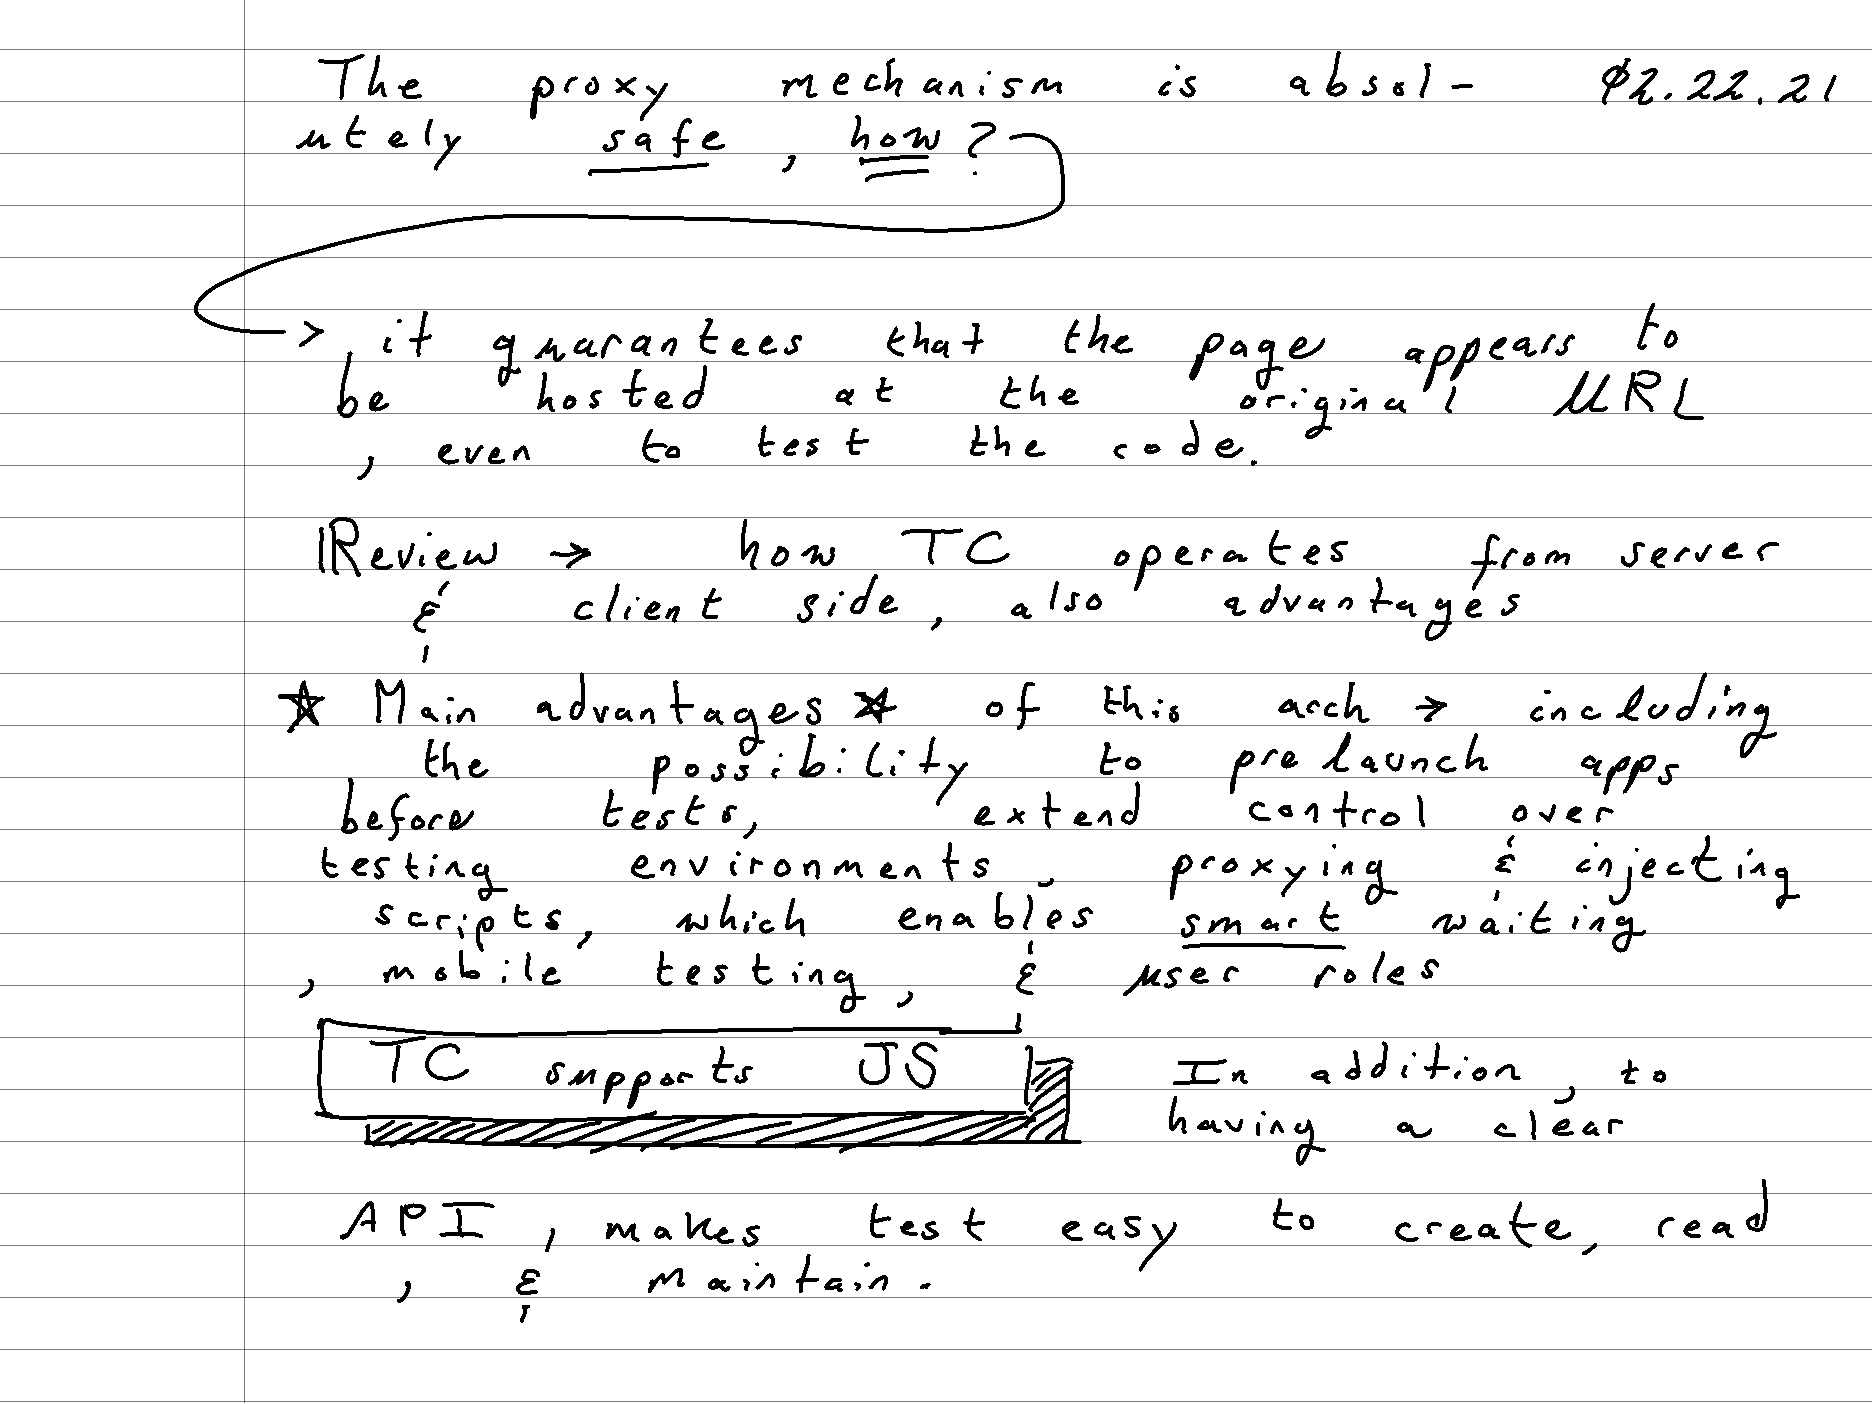 The proxy mechanism is absol- 02.22.21
utely safe, how?
> it guarantees that the page appears to
be hosted at the original URL
, even to test the code.
Review → how TC operates from server
& client side, also advantages
☆ Main advantages ☆ of this arch → including
the possibility to prelaunch apps
before tests, extend control over
testing environments, proxying & injecting
scripts, which enables smart waiting
, mobile testing, & user roles
TC supports JS
In addition, to
having a clear
API, makes test easy to create, read
, & maintain.